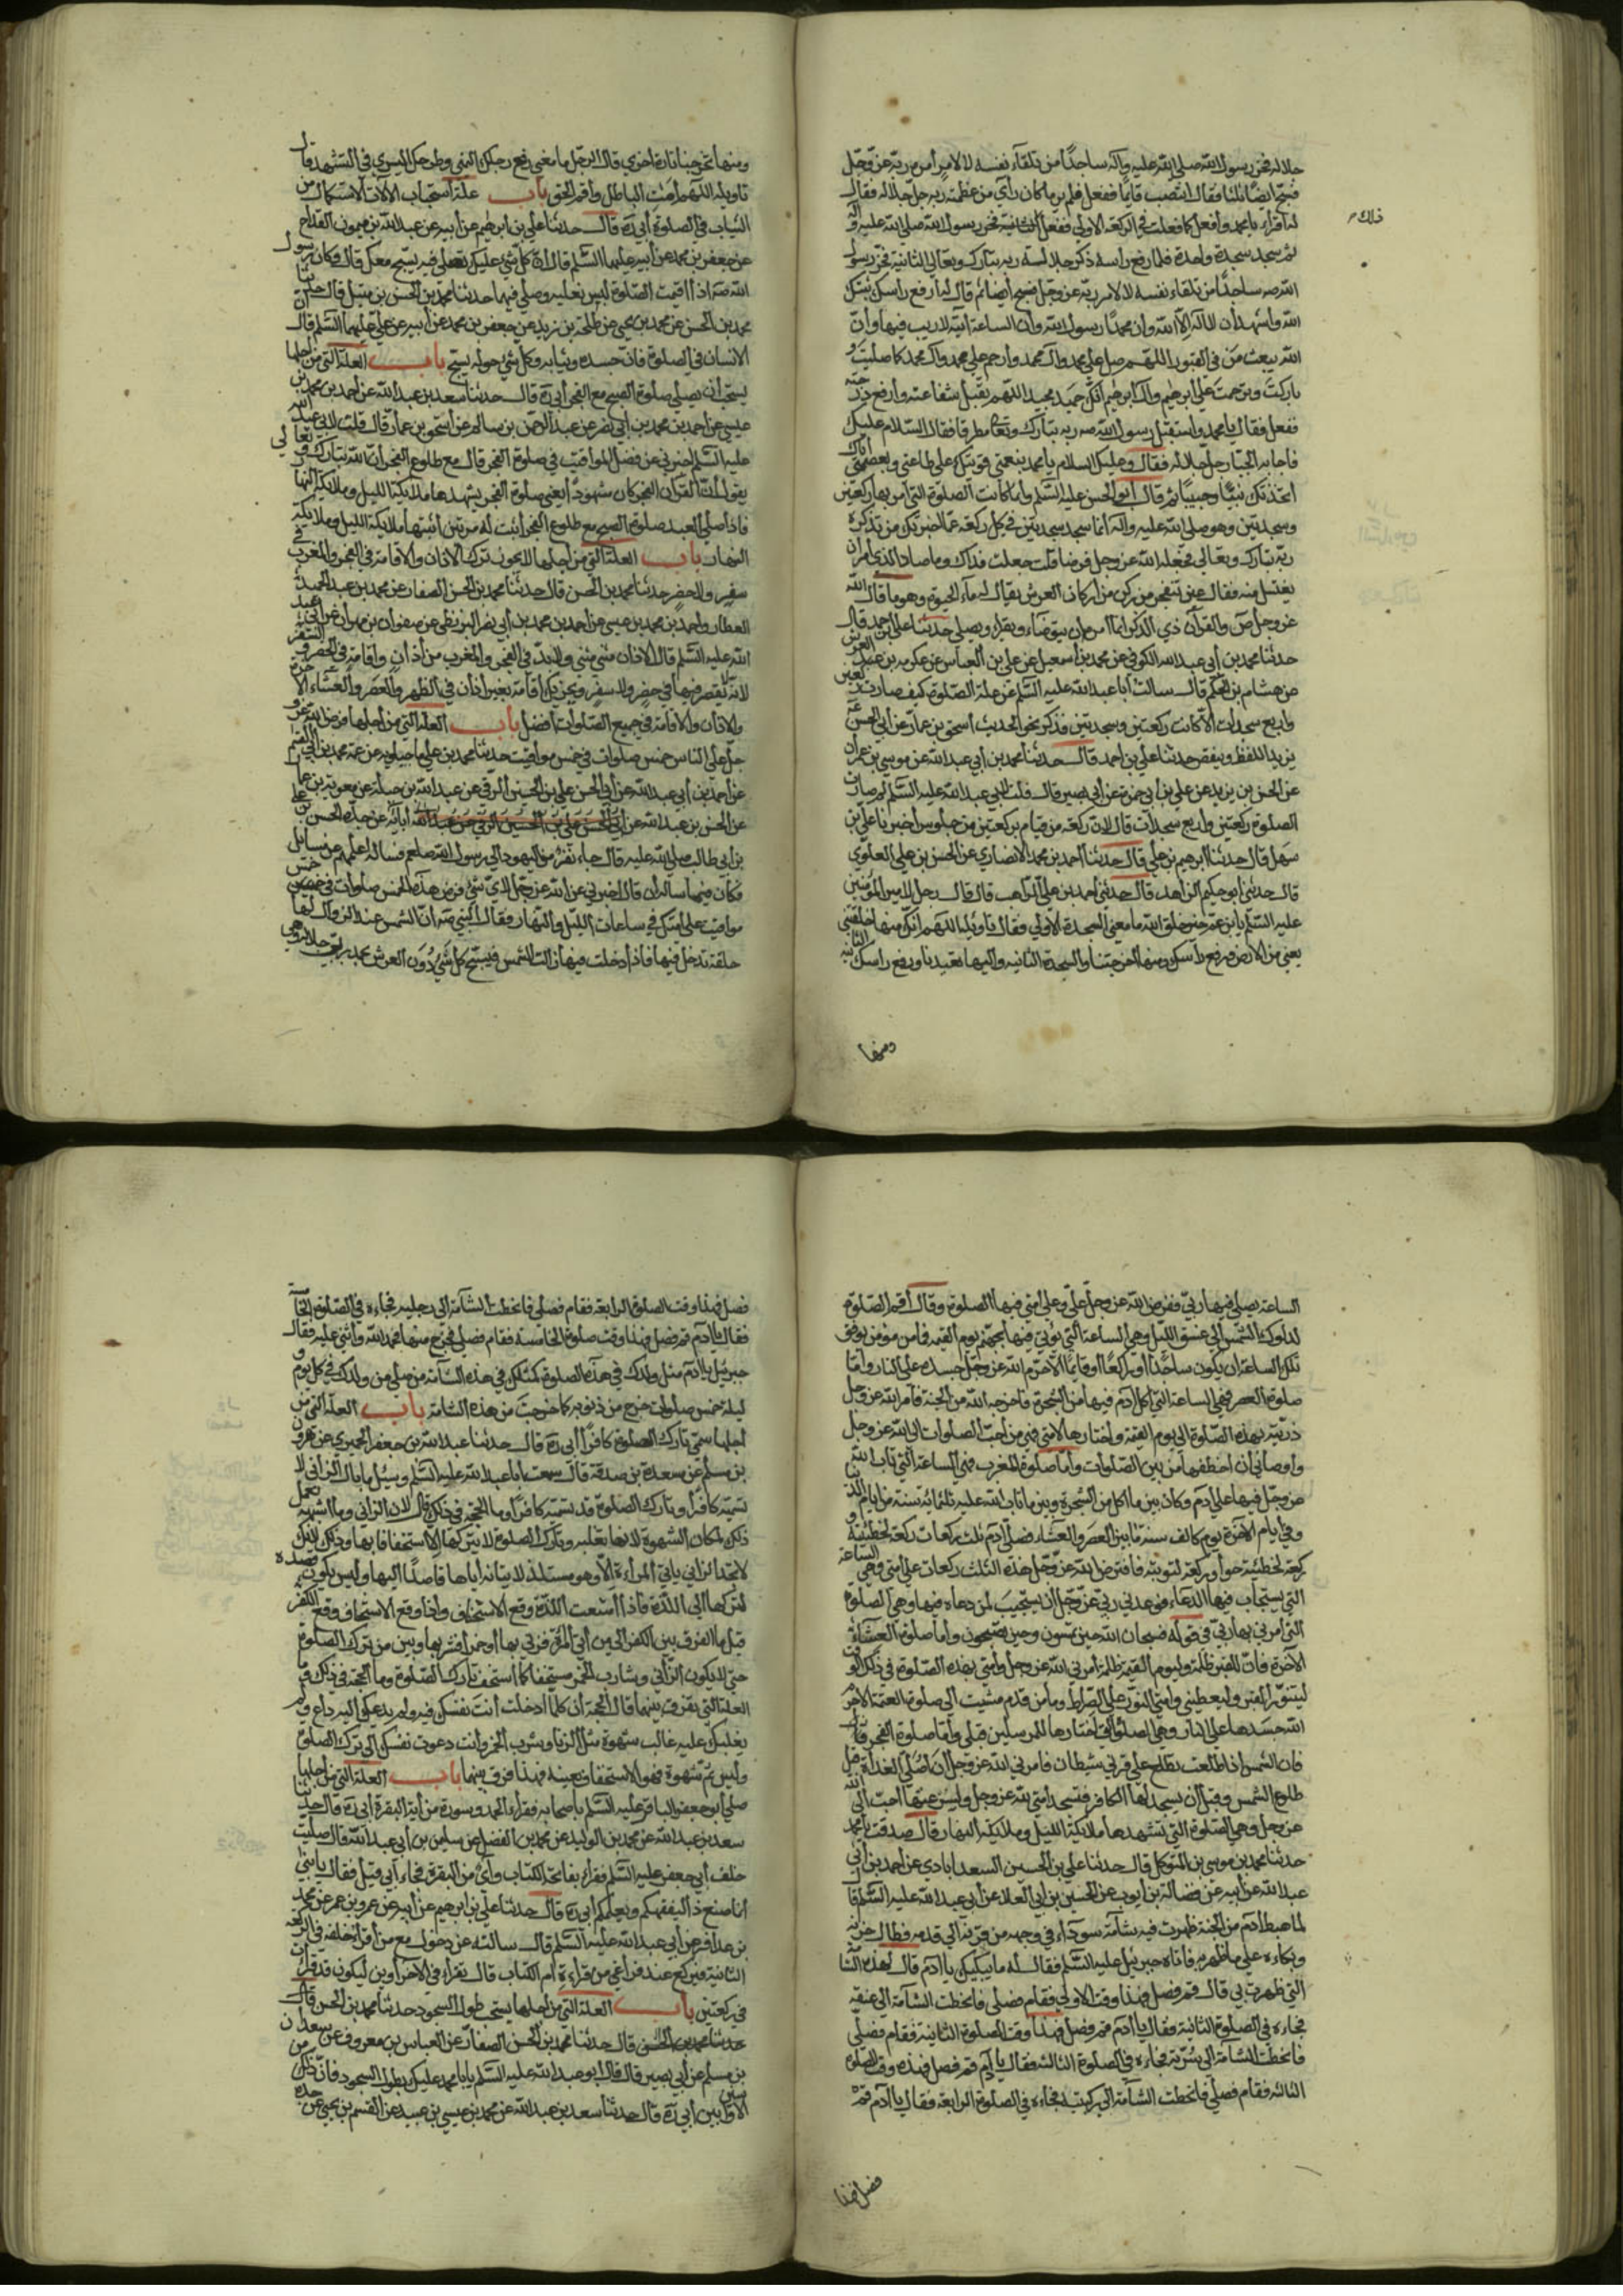 جلاله فخر رسول الله صلى الله عليه وآله ساجدًا من تلقاء نفسه لا لامر أمره ربه عز وجل
فسبح ايضًا ثلثا فقال انتصب قايمًا ففعل فلم ير ما كان رأى من عظمة ربه جل جلاله فقال
له اقرأ يا محمد وافعل كما فعلت في الركعة الاولى ففعل
ثم سجد سجدة واحدة فلما رفع راسه ذكر جلالة ربه تبارك وتعالى الثانية فخر رسول
الله صه ساجدًا من تلقاء نفسه لا لامر ربه عز وجل فسبح أيضا ثم قال له ارفع راسك ثبتك
الله واشهد أن لا اله الا الله وان محمدًا رسول الله وأن الساعة اتية لا ريب فيها وأن
الله يبعث من في القبور اللهم صل على محمد وال محمد وارحم على محمد وآل محمد كما صليت و
باركت وترحمت على ابرهيم وال ابرهيم انك حميد مجيد اللهم تقبل شفاعته وارفع درجته
ففعل فقال يا محمد واستقبل رسول الله صه ربه تبارك وتعالى مطرقا فقال السلام عليك
فاجابه الجبار جل جلاله فقال وعليك السلام يا محمد بنعمتي قويتك على طاعتي وبعصمتي اياك
اتخذتك نبيًا وحبيبًا ثم قال أبو الحسن عليه السلم وانما كانت الصلوة التي أمر بها ركعتين
وسجدتين وهو صلى الله عليه واله انما سجد سجدتين في كل ركعة عما اخبرتك من تذكره
ربه تبارك وتعالى فجعله الله عز وجل فرضا قلت جعلت فداك وما صاد الذي أمر أن
يغتسل منه فقال عين تنفجر من ركن من أركان العرش يقال له ماء الحيوة وهو ما قال الله
عز وجل ص والقرآن ذي الذكر انما امره ان يتوضاء ويقراء ويصلي حدثنا علي بن احمد قال
حدثنا محمد بن أبي عبد الله الكوفي عن محمد بن أسمعيل عن علي بن العباس عن عكرمه بن عبد العرش
عن هشام بن الحكم قال سالت أبا عبد الله عليه السلم عن علة الصلوة كيف صارت ركعتين
واربع سجدات الا كانت ركعتين وسجدتين فذكر نحو الحديث اسحق بن عمار عن أبي الحسن عه
يزيد اللفظ وينقص حدثنا علي بن احمد قال حدثنا محمد بن أبي عبد الله عن موسى بن عمران
عن الحسن بن يزيد عن علي بن أبي حمزة عن أبي بصير قال قلت لابي عبد الله عليه السلم لم صارت
الصلوة ركعتين واربع سجدات قال لان ركعة من قيام بركعتين من جلوس أخبرنا علي بن
سهل قال حدثنا ابرهيم بن علي قال حدثنا أحمد بن محمد الانصاري عن الحسن بن علي العلوي
قال حدثني أبو حكيم الزاهد قال حدثني احمد بن علي الراهب قال قال رجل لامير المؤمنين
عليه السلم يا بن عم خير خلق الله ما معنى السجدة الاولى فقال تاويله اللهم انك منها خلقتني
يعني من الارض ورفع راسك ومنها أخرجتنا والسجدة الثانيه واليها تعيدنا ورفع راسك الثانيه
ومنها
ومنها تخرجنا تارة اخرى قال الرجل ما معنى رفع رجلك اليمنى وطرحك اليسرى في التشهد قال
تاويله اللهم أمت الباطل واقم الحق باب علة استحباب
الثياب في الصلوة أبي ره قال حدثنا علي بن ابرهيم عن أبيه عن عبد الله بن ميمون القداح
عن جعفر بن محمد عن أبيه عليهما السلم قال ان كل شي عليك تصلي فيه يسبح معك قال وكان رسول
الله صه اذا اقيمت الصلوة لبس نعليه وصلى فيهما حدثنا محمد بن الحسن بن متيل قال حدثنا
محمد بن الحسن عن محمد بن يحيى عن طلحة بن زيد عن جعفر بن محمد عن أبيه عن علي عليهما السلم قال ان
الانسان في الصلوة فان جسده وثيابه وكل شي حوله يسبح باب العلة التي من اجلها
يستحب أن يصلي صلوة الصبح مع الفجر أبي ره قال حدثنا سعد بن عبد الله عن احمد بن محمد بن
عيسى عن احمد بن محمد بن أبي نصر عن عبد الرحمن بن سالم عن أسحق بن عمار قال قلت لابي عبد الله
عليه السلم اخبرني عن افضل المواقيت في صلوة الفجر قال مع طلوع الفجر أن الله تبارك وتعالى
يقول ان القرآن الفجر كان مشهودًا يعني صلوة الفجر يشهدها ملائكة الليل وملائكة النهار
فاذا صلى العبد صلوة الصبح مع طلوع الفجر اثبت له مرتين أثبتها ملائكة الليل وملائكة
النهار باب العلة التي من أجلها لا يجوز ترك الاذان والاقامة في الفجر والمغرب في
سفر ولا حضر حدثنا محمد بن الحسن قال حدثنا محمد بن الحسن الصفار عن محمد بن عبد الحميد
العطار واحمد بن محمد بن عيسى عن أحمد بن محمد بن أبي نصر البزنطي عن صفوان بن مهران عن أبي عبد
الله عليه السلم قال الاذان مثنى مثنى ولا بد في الفجر والمغرب من أذان واقامة في الحضر والسفر
لانه لا يقصر فيهما في حضر ولا سفر ويجزيك اقامة بغير أذان في الظهر والعصر والعشاء الاخرة
والاذان والاقامة في جميع الصلوات افضل باب العلة التي من أجلها فرض الله عز و
جل على الناس خمس صلوات في خمس مواقيت حدثنا محمد بن علي ماجيلويه عن عمه محمد بن أبي القسم
عن أحمد بن أبي عبد الله عن أبي الحسن علي بن الحسين الرقي عن عبد الله بن جبلة عن معوية بن عمار
عن الحسن بن عبد الله عن أبي الحسن علي بن الحسين الرقي عن عبد الله أبايه عن جده الحسن بن علي
بن أبي طالب صلى الله عليه قال جاء نفر من اليهود الى رسول الله صلعم فساله اعلمهم عن مسائل
فكان فيما ساله ان قال اخبرني عن الله عز وجل لاي شي فرض هذه الخمس صلوات في خمس
مواقيت على امتك في ساعات الليل والنهار فقال النبي صه ان الشمس عند الزوال لها
حلقة تدخل فيها فاذا دخلت فيها زالت الشمس فيسبح كل شي دون العرش بحمد ربي جل جلاله وهي
الساعة يصلي فيها ربي ففرض الله عز وجل علي وعلى أمتي فيها الصلوة وقال أقم الصلوة
لدلوك الشمس الى غسق الليل وهي الساعة التي يؤتى فيها بجهنم يوم القيمه فما من مؤمن يوافق
تلك الساعة ان يكون ساجدًا أو راكعًا أو قايمًا الا حرم الله عز وجل جسده على النار وأما
صلوة العصر فهي الساعة التي اكل آدم فيها من الشجرة فاخرجه الله من الجنة فامر الله عز وجل
ذريته بهذه الصلوة الى يوم القيمة واختارها لامتي فهي من احب الصلوات الى الله عز وجل
واوصاني ان احفظها من بين الصلوات وأما صلوة المغرب فهي الساعة التي تاب الله
عز وجل فيها على آدم وكان بين ما اكل من الشجرة وبين ما تاب الله عليه ثلثمائة سنة من ايام الدنيا
وفي أيام الاخرة يوم كالف سنة ما بين العصر والعشاء فصلى آدم ثلث ركعات ركعة لخطيئته و
ركعة لخطيئة حوا وركعة لتوبته فافترض الله عز وجل هذه الثلث ركعات على أمتي وهي الساعة
التي يستجاب فيها الدعاء فوعدني ربي عز وجل أن يستجيب لمن دعاه فيها وهي الصلوة
التي أمرني بها ربي في قوله فسبحان الله حين تمسون وحين تصبحون وأما صلوة العشاء
الآخرة فان للقبر ظلمة وليوم القيمة ظلمة أمرني الله عز وجل وأمتي بهذه الصلوة في ذلك الوقت
لينور القبر وليعطيني وامتي النور على الصراط وما من قدم مشيت الى صلوة العتمة الا حرم
الله جسدها على النار وهي الصلوة التي أختارها للمرسلين قبلي وأما صلوة الفجر فان
فان الشمس اذا طلعت تطلع على قرني شيطان فامرني الله عز وجل أن أصلي الغداة قبل
طلوع الشمس وقبل أن يسجد لها الكافر فتسجد أمتي لله عز وجل وسرعتها أحب الى الله
عز وجل وهي الصلوة التي تشهدها ملائكة الليل وملائكة النهار قال صدقت يا محمد
حدثنا محمد بن موسى بن المتوكل قال حدثنا علي بن الحسين السعدابادي عن احمد بن أبي
عبد الله عن أبيه عن فضالة بن أيوب عن الحسين بن ابي العلا عن أبي عبد الله عليه السلم قال
لما هبط آدم من الجنة ظهرت فيه شامة سوداء في وجهه من قرنه الى قدمه فطال حزنه
وبكاءه على ما ظهر به فاتاه جبرئيل عليه السلم فقال له ما يبكيك يا آدم قال لهذه الشامة
التي ظهرت بي قال قم فصل فهذا وقت الاولى فقام فصلى فانحطت الشامة الى عنقه
فجاءه في الصلوة الثانية فقال يا آدم قم فصل فهذا وقت الصلوة الثانية فقام فصلى
فانحطت الشامة الى سرته فجاءه في الصلوة الثالثه فقال يا آدم قم فصل فهذه وقت الصلوة
الثالثه فقام فصلى فانحطت الشامة الى ركبتيه فجاءه في الصلوة الرابعة فقال يا آدم قم
فصل فهذا
فصل فهذا وقت الصلوة الرابعة فقام فصلى فانحطت الشامة الى رجليه فجاءه في الصلوة الخامسة
فقال يا آدم قم فصل فهذا وقت صلوة الخامسة فقام فصلى فخرج منها فحمد الله وأثنى عليه فقال
جبرئيل يا آدم مثل ولدك في هذه الصلوة كمثلك في هذه الشامة من صلى من ولدك في كل يوم و
ليلة خمس صلوات خرج من ذنوبه كما خرجت من هذه الشامة باب العلة التي من
أجلها سمي تارك الصلوة كافرًا أبي ره قال حدثنا عبد الله بن جعفر الحميري عن هرون
بن مسلم عن مسعدة بن صدقة قال سمعت أبا عبد الله عليه السلم وسئل ما بال الزاني لا
تسميه كافرًا وتارك الصلوة قد تسميه كافرًا وما الحجة في ذلك قال لان الزاني وما اشبهه يعمل
ذلك لمكان الشهوة لانها تغلبه وتارك الصلوة لا يتركها الا استخفافا بها وذلك لانك
لا تجد الزاني ياتي المراءة الا وهو مستلذ لاتيانه أياها قاصدًا اليها وليس يكون قصده
لتركها الى اللذة فاذا أنتفت اللذة وقع الاستخفاف واذا وقع الاستخفاف وقع الكفر
قيل ما الفرق بين الكفر الى من أتى امراة فزنى بها أو خمر فشربها وبين من ترك الصلوة
حتى لا يكون الزاني وشارب الخمر مستخفا كما أستخف تارك الصلوة وما الحجة في ذلك وما
العلة التي تفرق بينهما قال الحجة أن كلما أدخلت أنت نفسك فيه ولم يدعك اليه داع ولم
يغلبك عليه غالب شهوة مثل الزنا وشرب الخمر وانت دعوت نفسك الى ترك الصلوة
وليس ثم شهوة فهو الاستخفاف بعينه فهذا فرق بينهما باب العلة التي من اجلها
صلى أبو جعفر الباقر عليه السلم باصحابه فقراء الحمد وسورة من أية البقرة أبي ره قال حدثنا
سعد بن عبد الله عن محمد بن الوليد عن محمد بن الفضل عن سليمن بن أبي عبد الله قال صليت
خلف أبي جعفر عليه السلم فقراء بفاتحة الكتاب وآي من البقرة فجاء أبي فقال يا بني
أنما صنع ذا ليفقهكم ويعلمكم أبي ره قال حدثنا علي بن ابرهيم عن أبيه عن عمرو بن عمر عن محمد
بن عذافر عن أبي عبد الله عليه السلم قال سالته عن دخولي مع من أقرا خلفه في الركعة
الثانية فيركع عند فراغي من قراءة أم الكتاب قال تقراء في الاخراوين ليكون قد قرات
في ركعتين باب العلة التي من اجلها يستحب طول السجود حدثنا محمد بن الحسن قال
حدثنا محمد بن الحسن قال حدثنا محمد بن الحسن الصفار عن العباس بن معروف عن سعدان
بن مسلم عن أبي بصير قال قال ابو عبد الله عليه السلم يا با محمد عليك بطول السجود فان ذلك من سنن
الاوابين أبي ره قال حدثنا سعد بن عبد الله عن محمد بن عيسى بن عبيد عن القسم بن يحيى عن جده